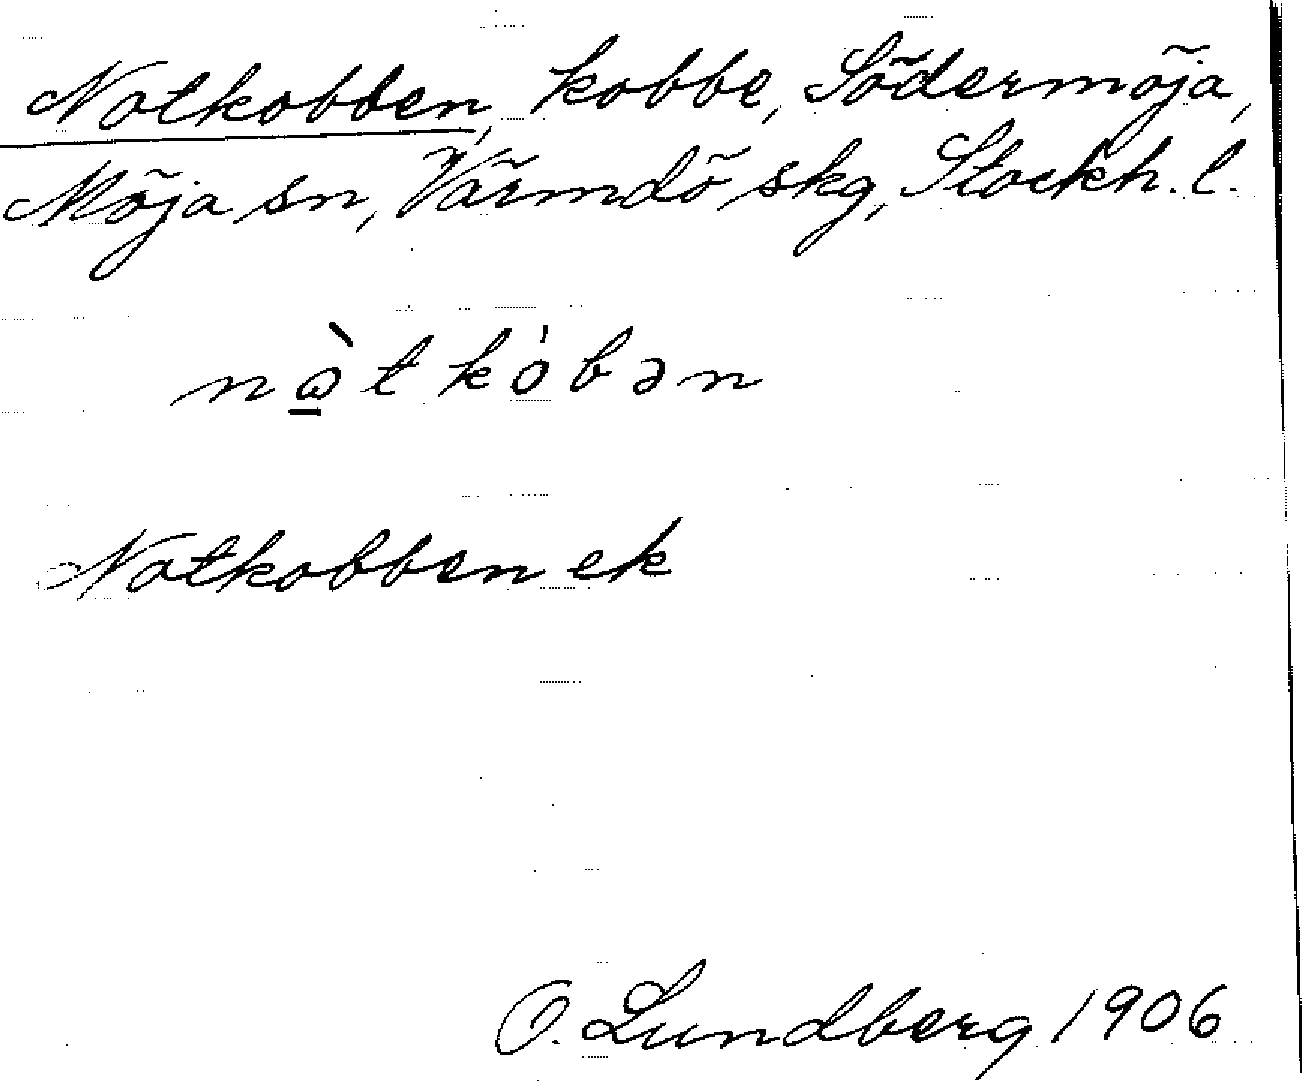 Notkobben, kobbe, Södermöja,
Möja sn, Värmdö skg, Stockh. l.
nὼ̱tkόbən
Notkobben ek
O. Lundberg 1906